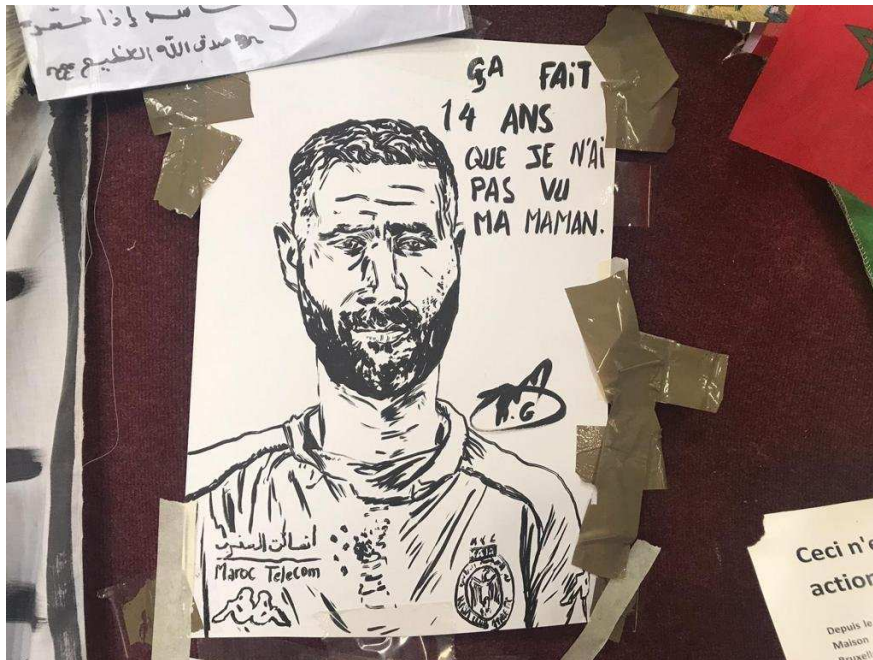 صدق الله العظيم
ÇA FAIT
14 ANS
QUE JE N'AI
PAS VU
MA MAMAN.
Maroc Telecom
Ceci n'e
action
Depuis le
Maison
Bruxell